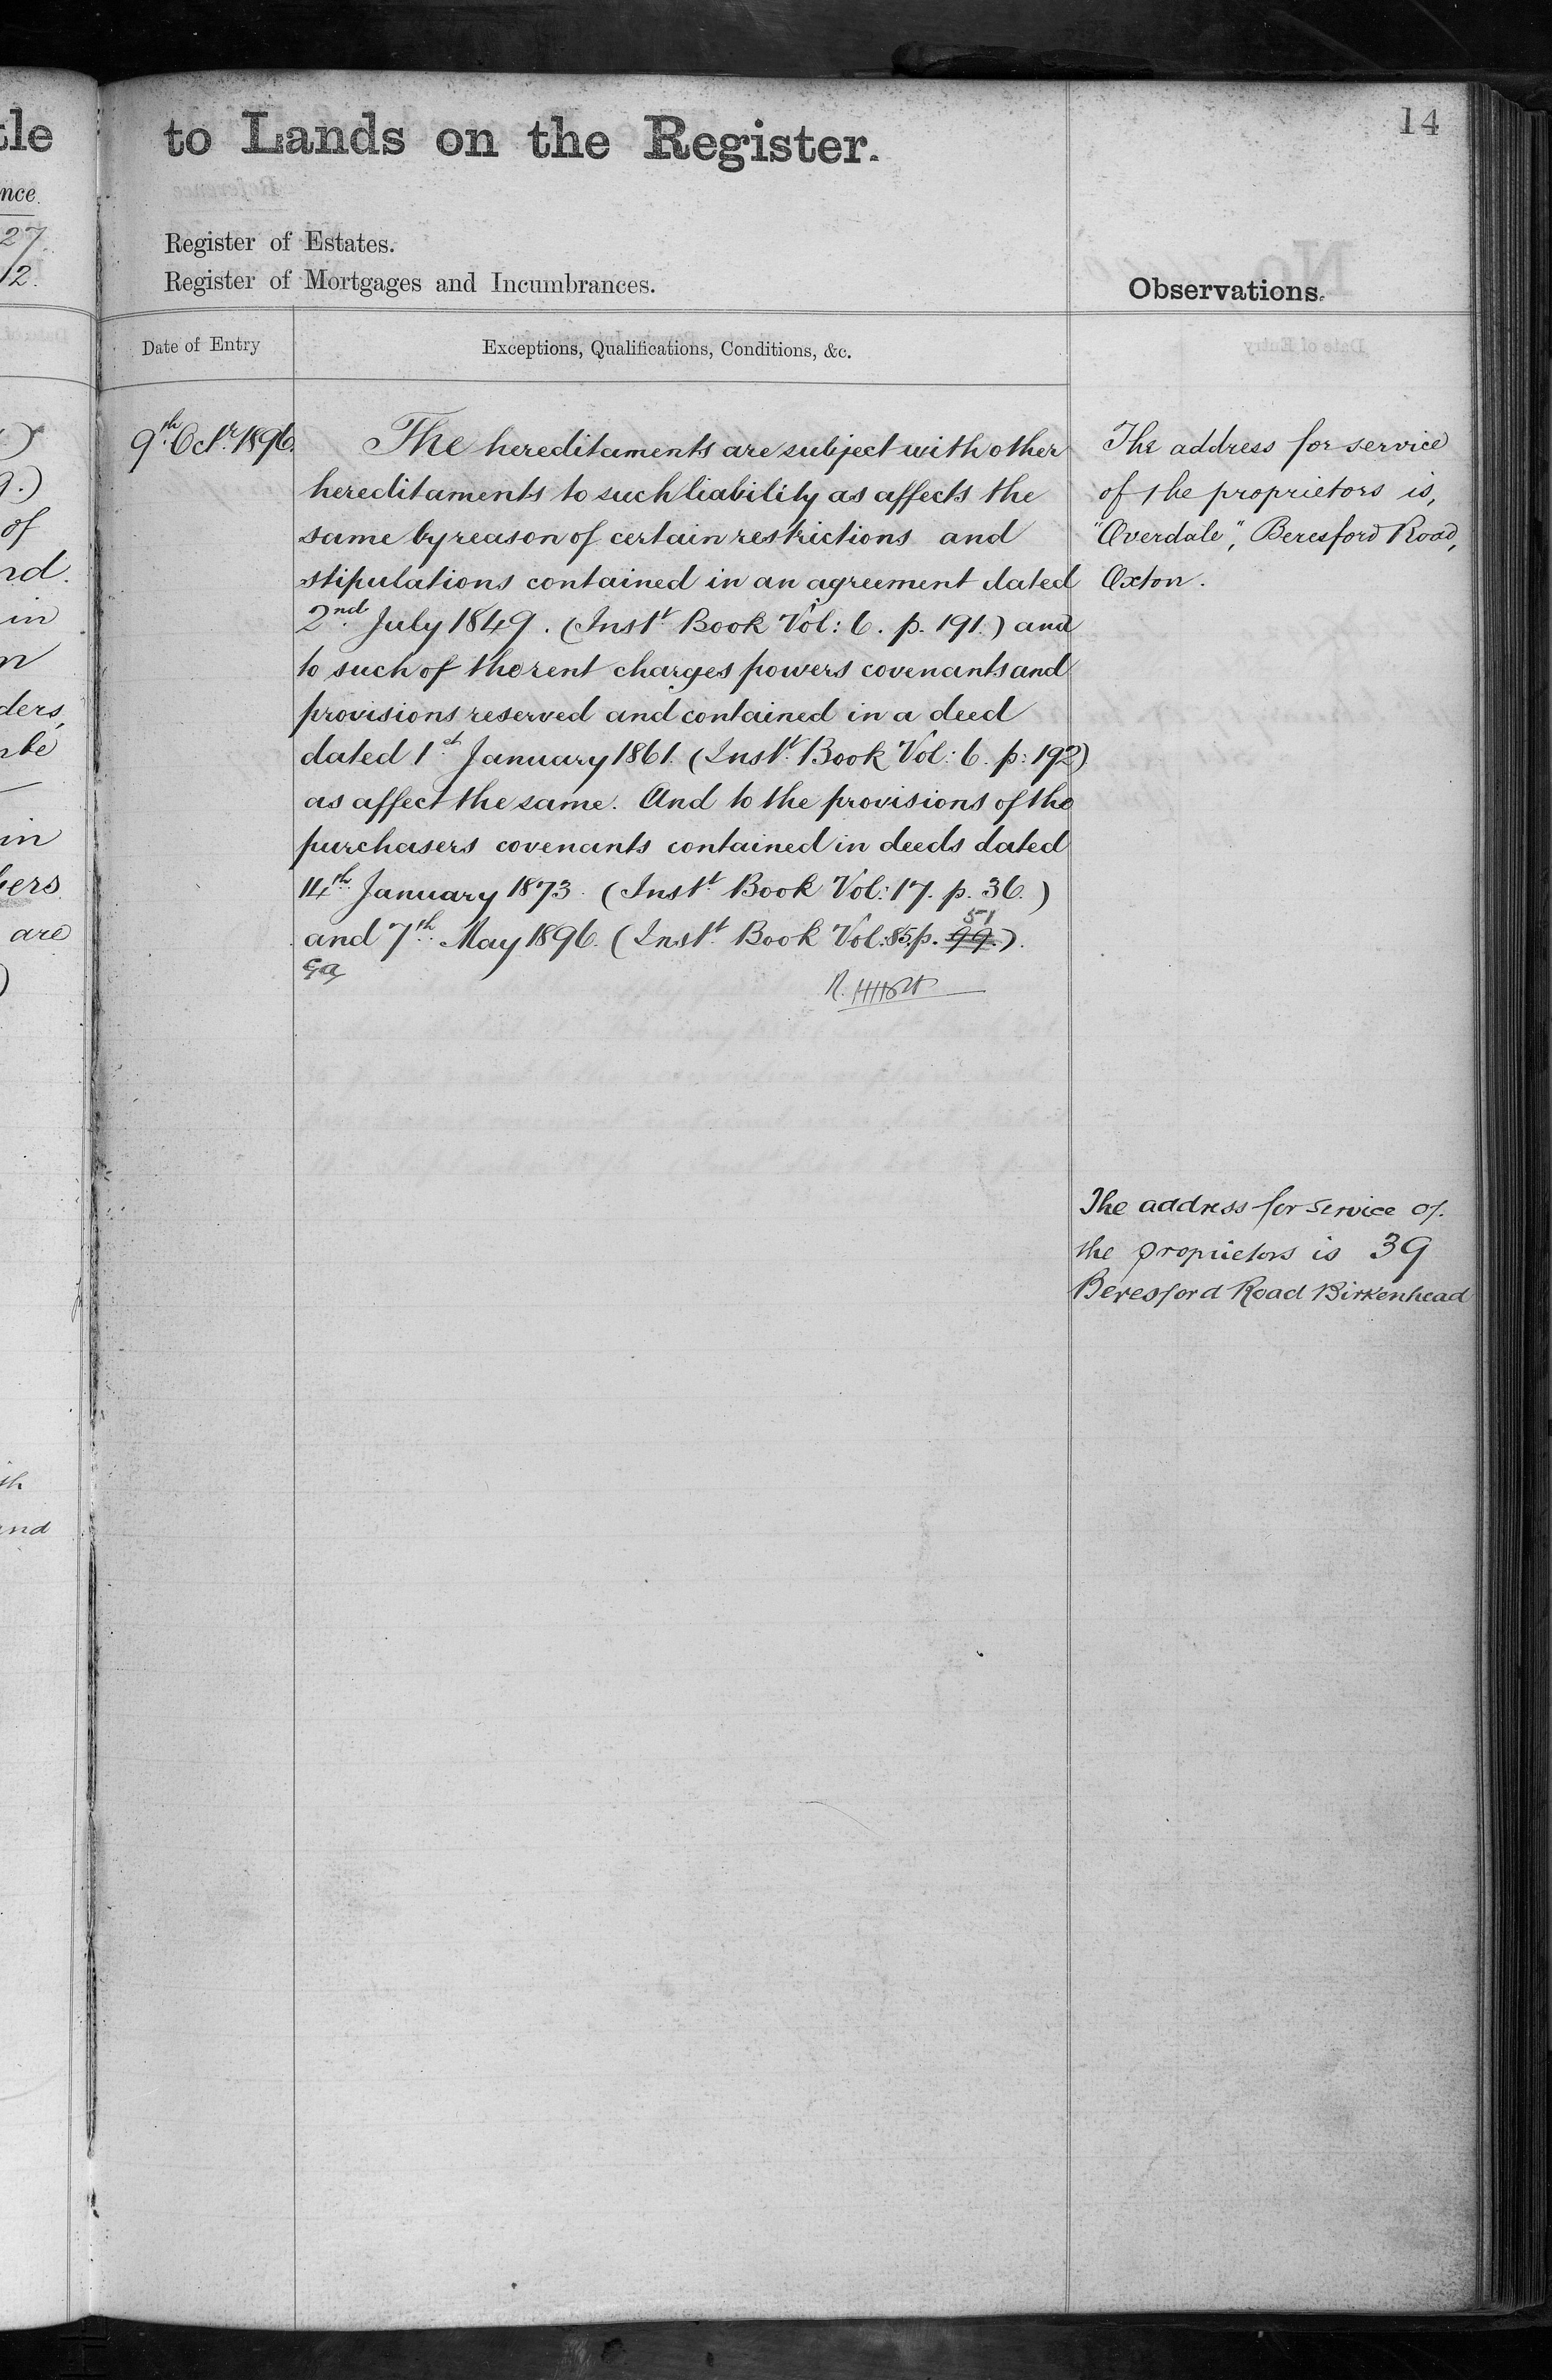 to Lands on the Register.
14
Register of Estates.
Register of Mortgages and Incumbrances.
Observations.
Date of Entry
Exceptions, Qualifications, Conditions, &c.
9th Octr. 1896.
The hereditaments are subject with other
hereditaments to such liability as affects the
same by reason of certain restrictions and
stipulations contained in an agreement dated
2nd July 1849. (Instt. Book Vol: 6. p. 191.) and
to such of the rent charges powers covenants and
provisions reserved and contained in a deed
dated 1st January 1861. (Instt. Book Vol: 6. p: 192)
as affect the same. And to the provisions of the
purchasers covenants contained in deeds dated
14th January 1873. (Instt. Book Vol: 17. p. 36.)
51
and 7th May 1896. (Instt. Book Vol: 85. p. 99.).
The address for service
of the proprietors is,
"Overdale", Beresford Road,
Oxton.
The address for service of
the proprietors is 39
Beresford Road Birkenhead